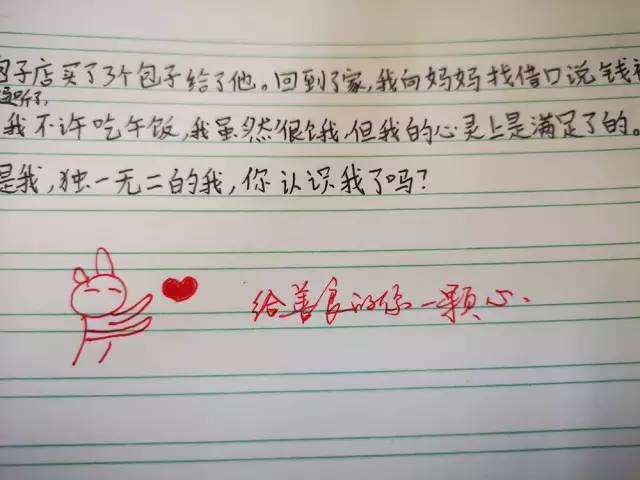 包子店买了了3个包子给了他。回到了家,我向妈妈找借口说钱
妈听了,
我不许吃午饭,我虽然很饿,但我的心灵上是满足了的。
是我,独一无二的我,你认识我了吗?
给善良的你一颗心.